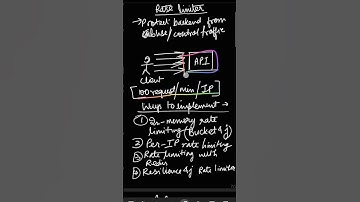 Rate limiter
→ Protect backend from
abuse/control traffic
API
client
[100 request/min/IP]
Ways to implement →
① In-memory rate
limiting (Bucket4j)
② Per-IP rate limiting
③ Rate limiting with
Redis
④ Resilience4j Rate limiter